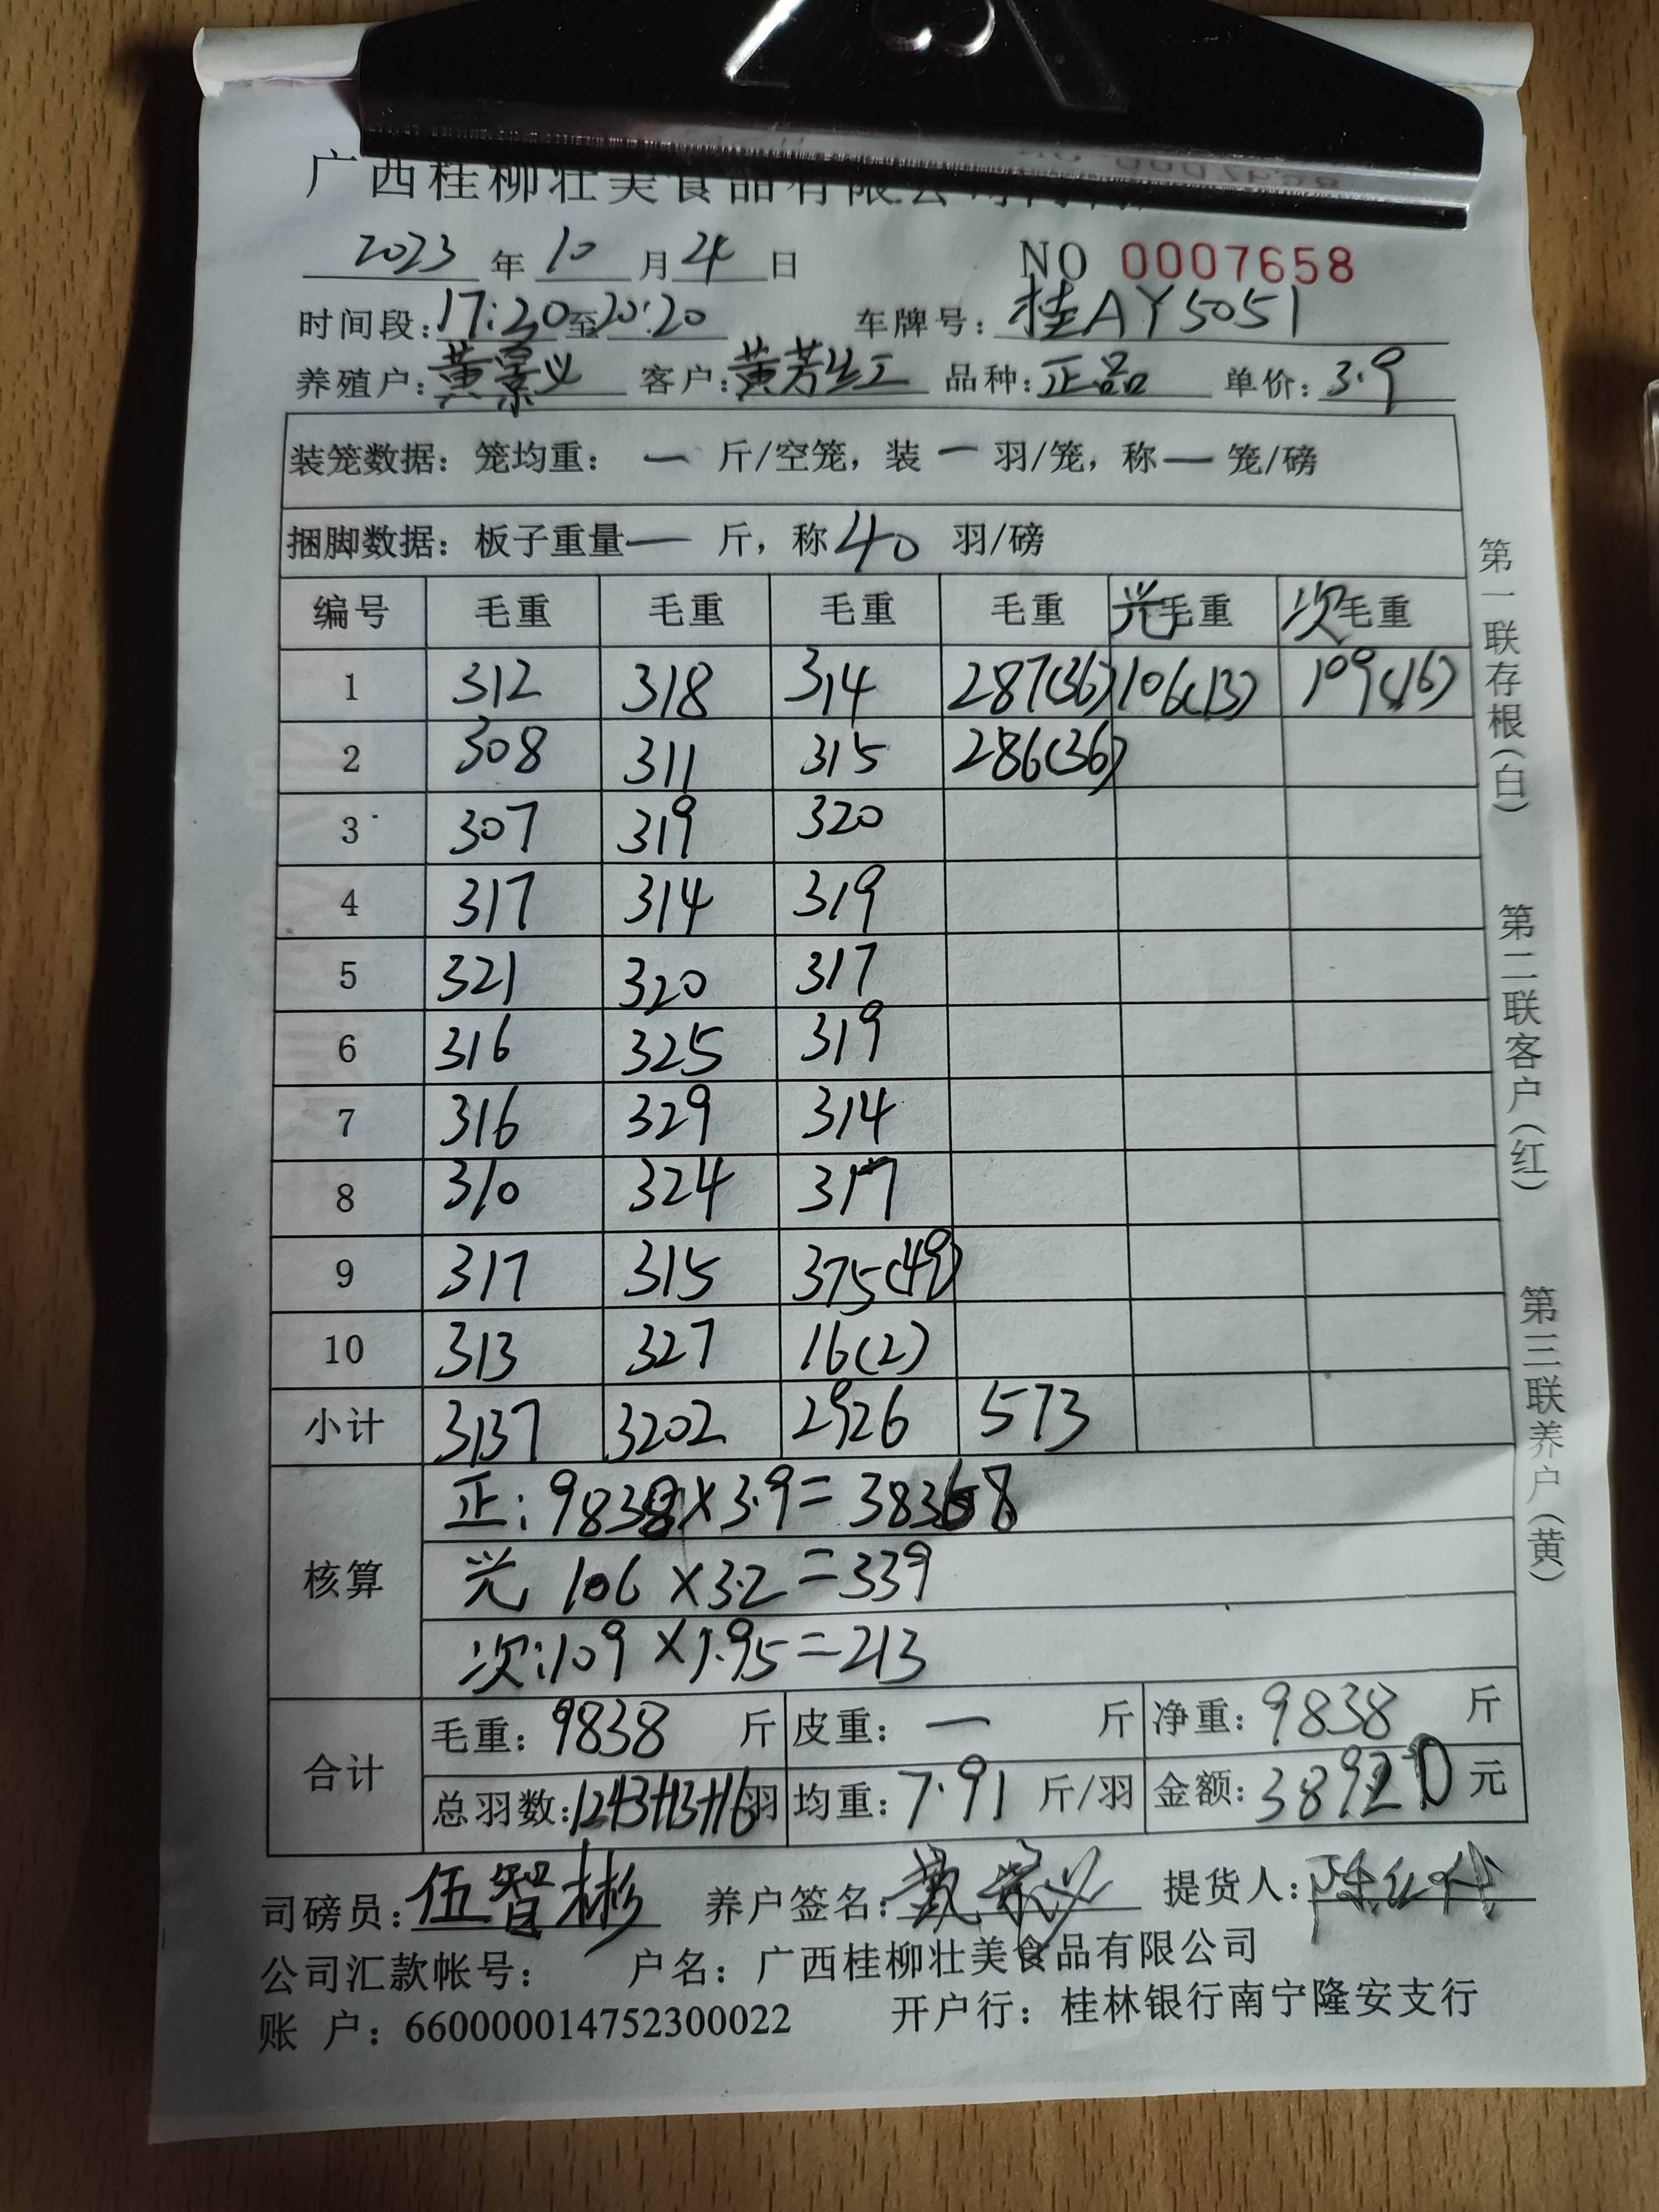 广西桂柳壮美食品有限公司
2023 年 10 月 24 日 NO 0007658
时间段:17:20至20:20 车牌号:桂AY5051
养殖户:黄景义 客户:黄芳生 品种:正品 单价:3.9
装笼数据:笼均重:一 斤/空笼,装 一 羽/笼,称 一 笼/磅
捆脚数据:板子重量 一 斤,称 40 羽/磅
编号 毛重 毛重 毛重 毛重 光毛重 次毛重
1 312 318 314 287(36) 106(13) 109(16)
2 308 311 315 286(36)
3 307 319 320
4 317 314 319
5 321 320 317
6 316 325 319
7 316 329 314
8 310 324 317
9 317 315 375(49)
10 313 327 16(2)
小计 3137 3202 2926 573
核算
正:9838×3.9=38368
光 106×3.2=339
次:109×1.95=213
合计
毛重:9838 斤 皮重:一 斤 净重:9838 斤
总羽数:1243+13+16羽 均重:7.91 斤/羽 金额:38920 元
司磅员:伍智彬 养户签名:黄景义 提货人:
公司汇款帐号: 户名:广西桂柳壮美食品有限公司
账 户:660000014752300022 开户行:桂林银行南宁隆安支行
第一联存根(白) 第二联客户(红) 第三联养户(黄)